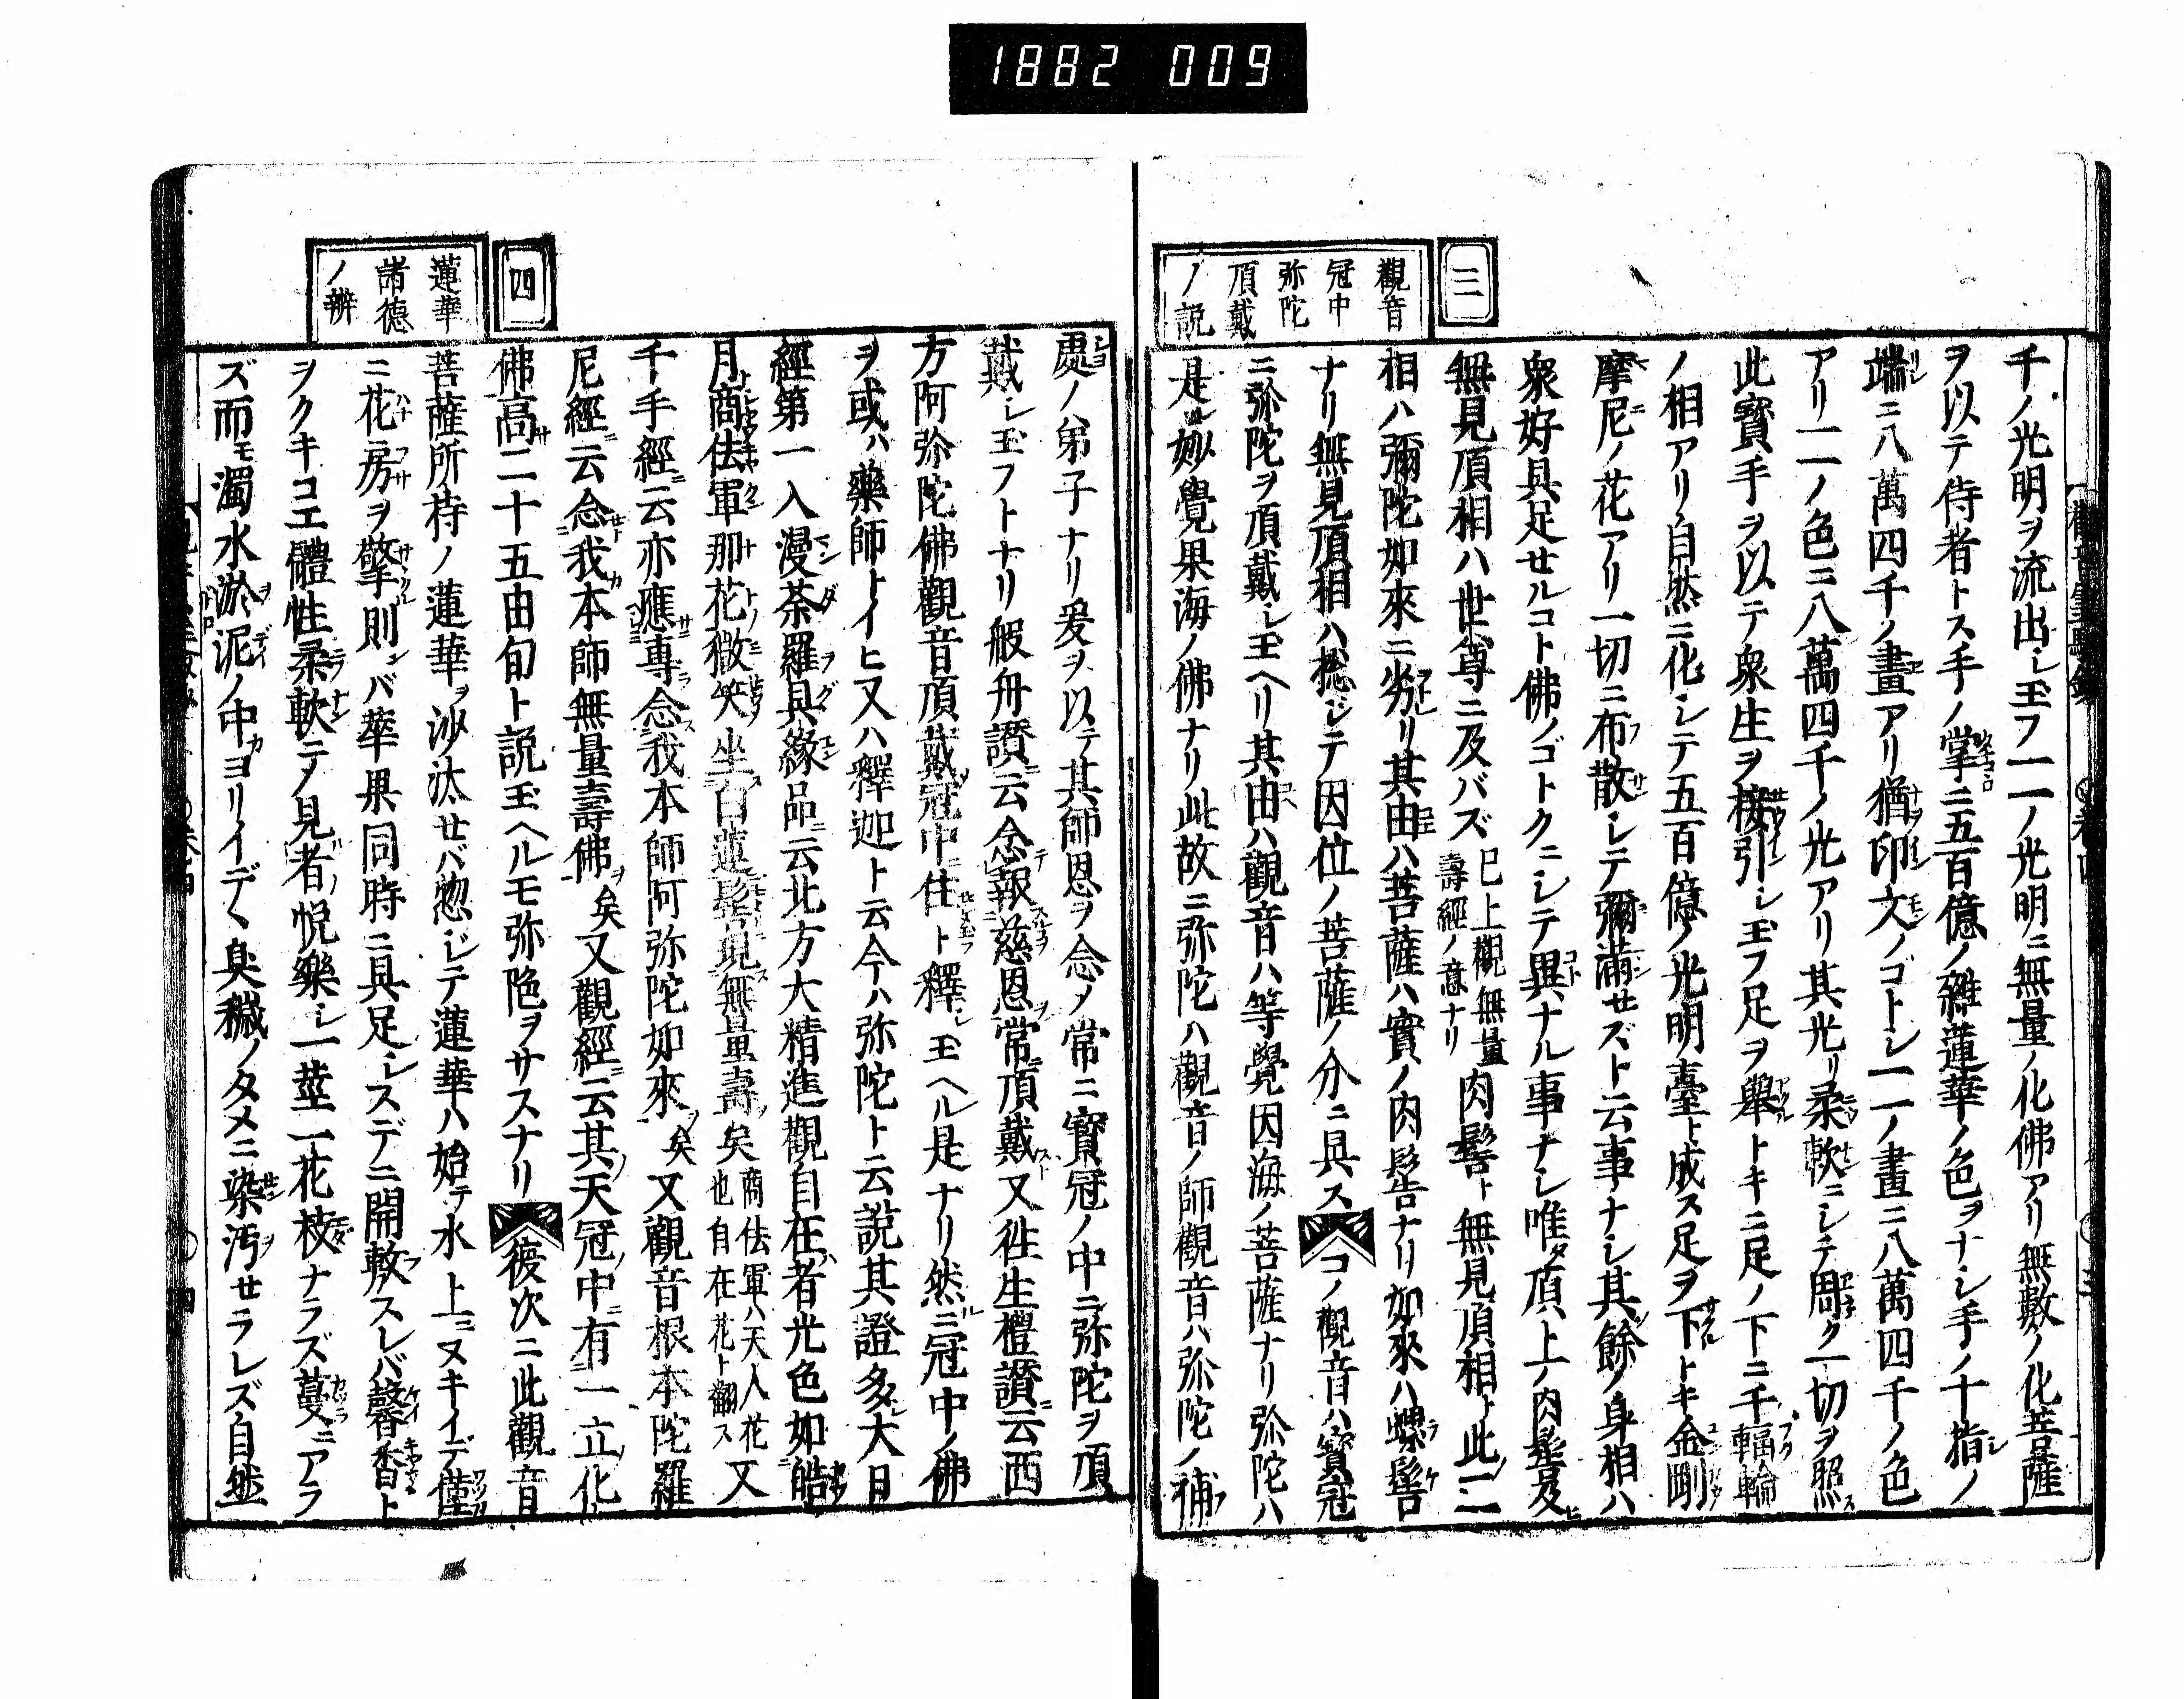 1882 009
三
觀音
冠中
弥陀
頂戴
ノ説
千ノ光明ヲ流出シ玉フ一一ノ光明ニ無量ノ化佛アリ無數ノ化菩薩
ヲ以テ侍者トス手ノ掌ニ五百億ノ雜蓮華ノ色ヲナシ手ノ十指ノ
端ニ八萬四千ノ畫アリ猶印文ノゴトシ一一ノ畫ニ八萬四千ノ色
アリ一一ノ色ニ八萬四千ノ光アリ其光リ柔軟ニシテ周ク一切ヲ照ス
此寳手ヲ以テ衆生ヲ接引シ玉フ足ヲ舉トキニ足ノ下ニ千輻輪
ノ相アリ自然ニ化シテ五百億ノ光明臺ト成ス足ヲ下トキ金剛
摩尼ノ花アリ一切ニ布散シテ彌滿セズト云事ナシ其餘ノ身相ハ
衆好具足セルコト佛ノゴトクニシテ異ナル事ナシ唯頂上ノ肉髻及ヒ
無見頂相ハ世尊ニ及バズ已上觀無量壽經ノ意ナリ肉髻ト無見頂相ト此ノ二ノ
相ハ彌陀如來ニ劣リ其由ハ菩薩ハ實ノ肉髻ナリ如來ハ螺髻
ナリ無見頂相ハ捴ジテ因位ノ菩薩ノ分ニ具スコノ觀音ハ寳冠
ニ弥陀ヲ頂戴シ玉ヘリ其由ハ觀音ハ等覺因海ノ菩薩ナリ弥陀ハ
是レ妙覺果海ノ佛ナリ此故ニ弥陀ハ觀音ノ師觀音ハ弥陀ノ補
四
蓮華
諸德
ノ辨
處ノ弟子ナリ爰ヲ以テ其師恩ヲ念ノ常ニ寳冠ノ中ニ弥陀ヲ頂
戴シ玉フトナリ般舟讃云念報慈恩常頂戴又徃生禮讃云西
方阿弥陀佛觀音頂戴冠中住ト釋シ玉ヘル是ナリ然ニ冠中ノ佛
ヲ或ハ藥師トイヒ又ハ釋迦ト云今ハ弥陀ト云説其證多シ大日
經第一入漫荼羅具緣品云北方大精進觀自在者光色如皓
月商佉軍那花微笑坐白蓮髻現無量壽矣商佉軍ハ天人花也自在花ト翻ス又
千手經云亦應專念我本師阿弥陀如來矣又觀音根本陀羅
尼經云念我本師無量壽佛矣又觀經云其天冠中有一立化
佛高二十五由旬ト説玉ヘルモ弥陀ヲサスナリ彼次ニ此觀音
菩薩所持ノ蓮華ヲ沙汰セバ惣ジテ蓮華ハ始テ水上ニヌキイデ僅
ニ花房ヲ擎則ンバ華果同時ニ具足シスデニ開敷スレバ馨香ト
ヲクキコエ體性柔軟テノ見者悦樂シ一莖一花枝ナラズ蔓ニアラ
ズ而モ濁水淤泥ノ中ヨリイデヽ臭穢ノタメニ染汚セラレズ自然